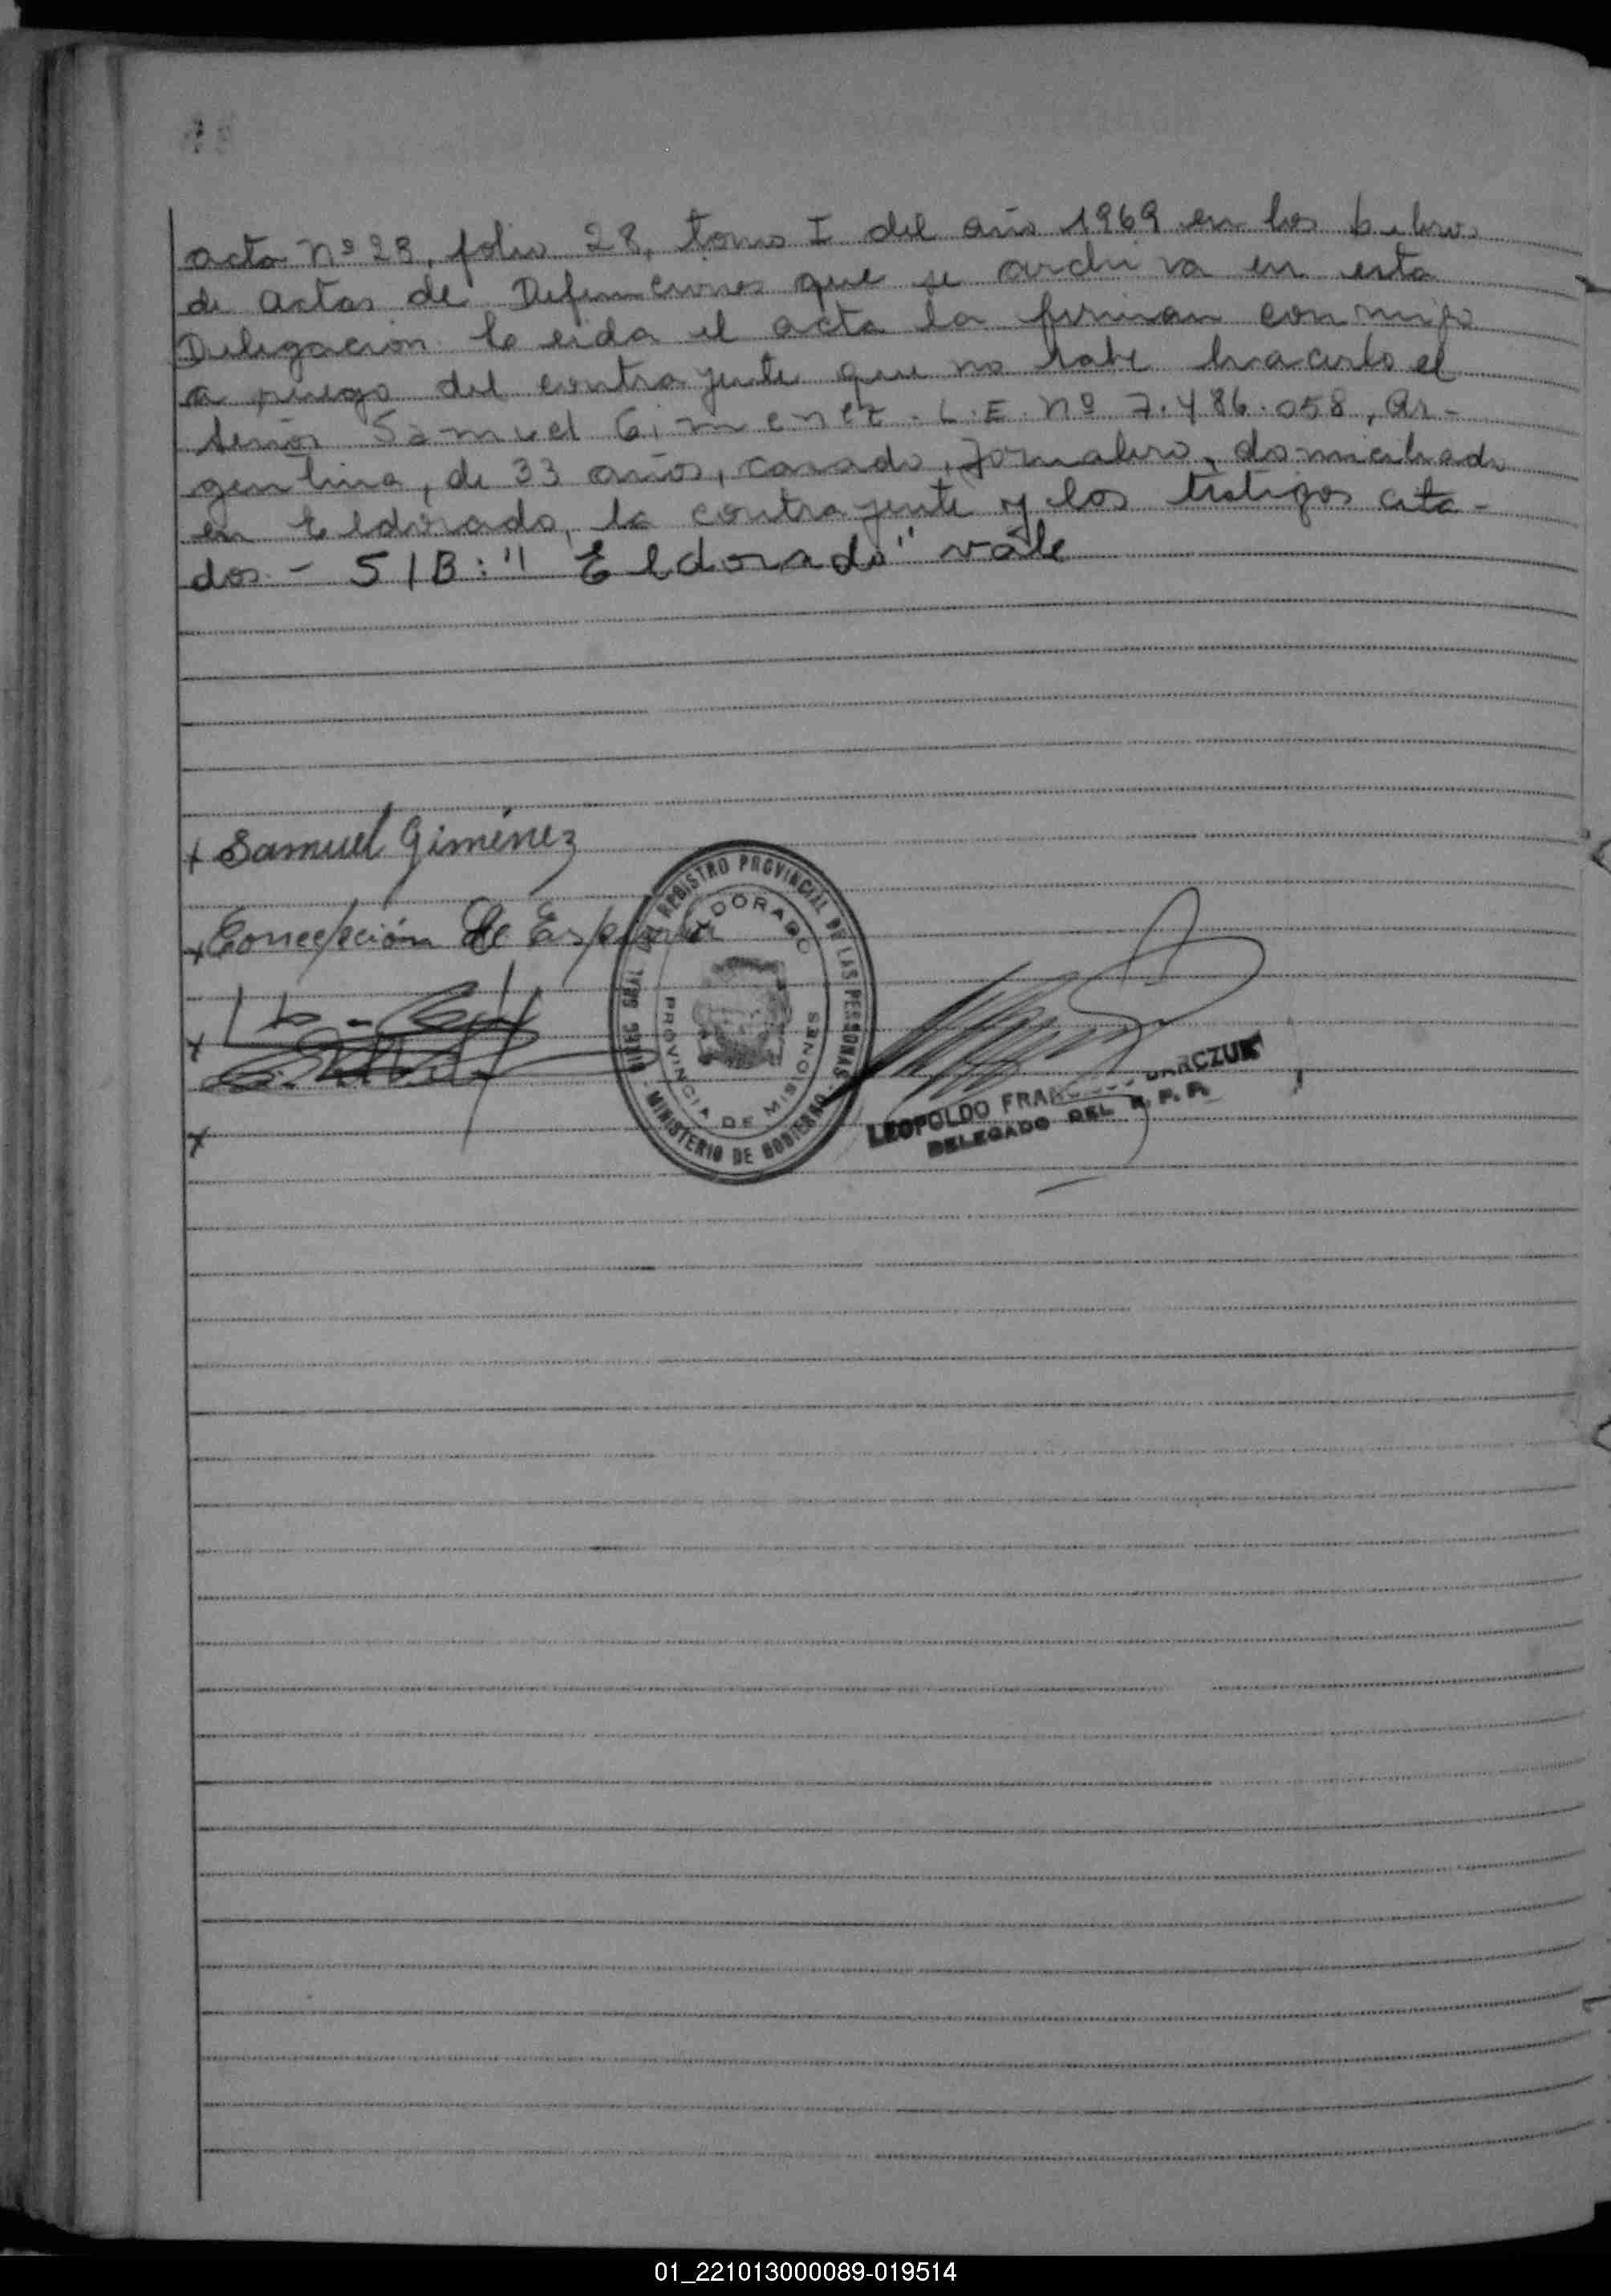 acta nº 28, folio 28, tomo I del año 1969 en los Libros
de actas de Defunciones que se archiva en esta
Delegación. Leida el acta la firman conmigo
a ruego del contrayente que no sabe hacerlo el
señor Samuel Gimenez. L.E. nº 7.486.058, Ar-
gentino, de 33 años, casado, jornalero, domiciliado
en Eldorado, la contrayente y los testigos cita-
dos.- S/B: "Eldorado" vale
x Samuel Giménez
x Concepción de
x
x
REGISTRO PROVINCIAL DE LAS PERSONAS
MINISTERIO DE GOBIERNO
DORADO
PROVINCIA DE MISIONES
LEOPOLDO
DELEGADO DEL R. P. P.
01_221013000089-019514